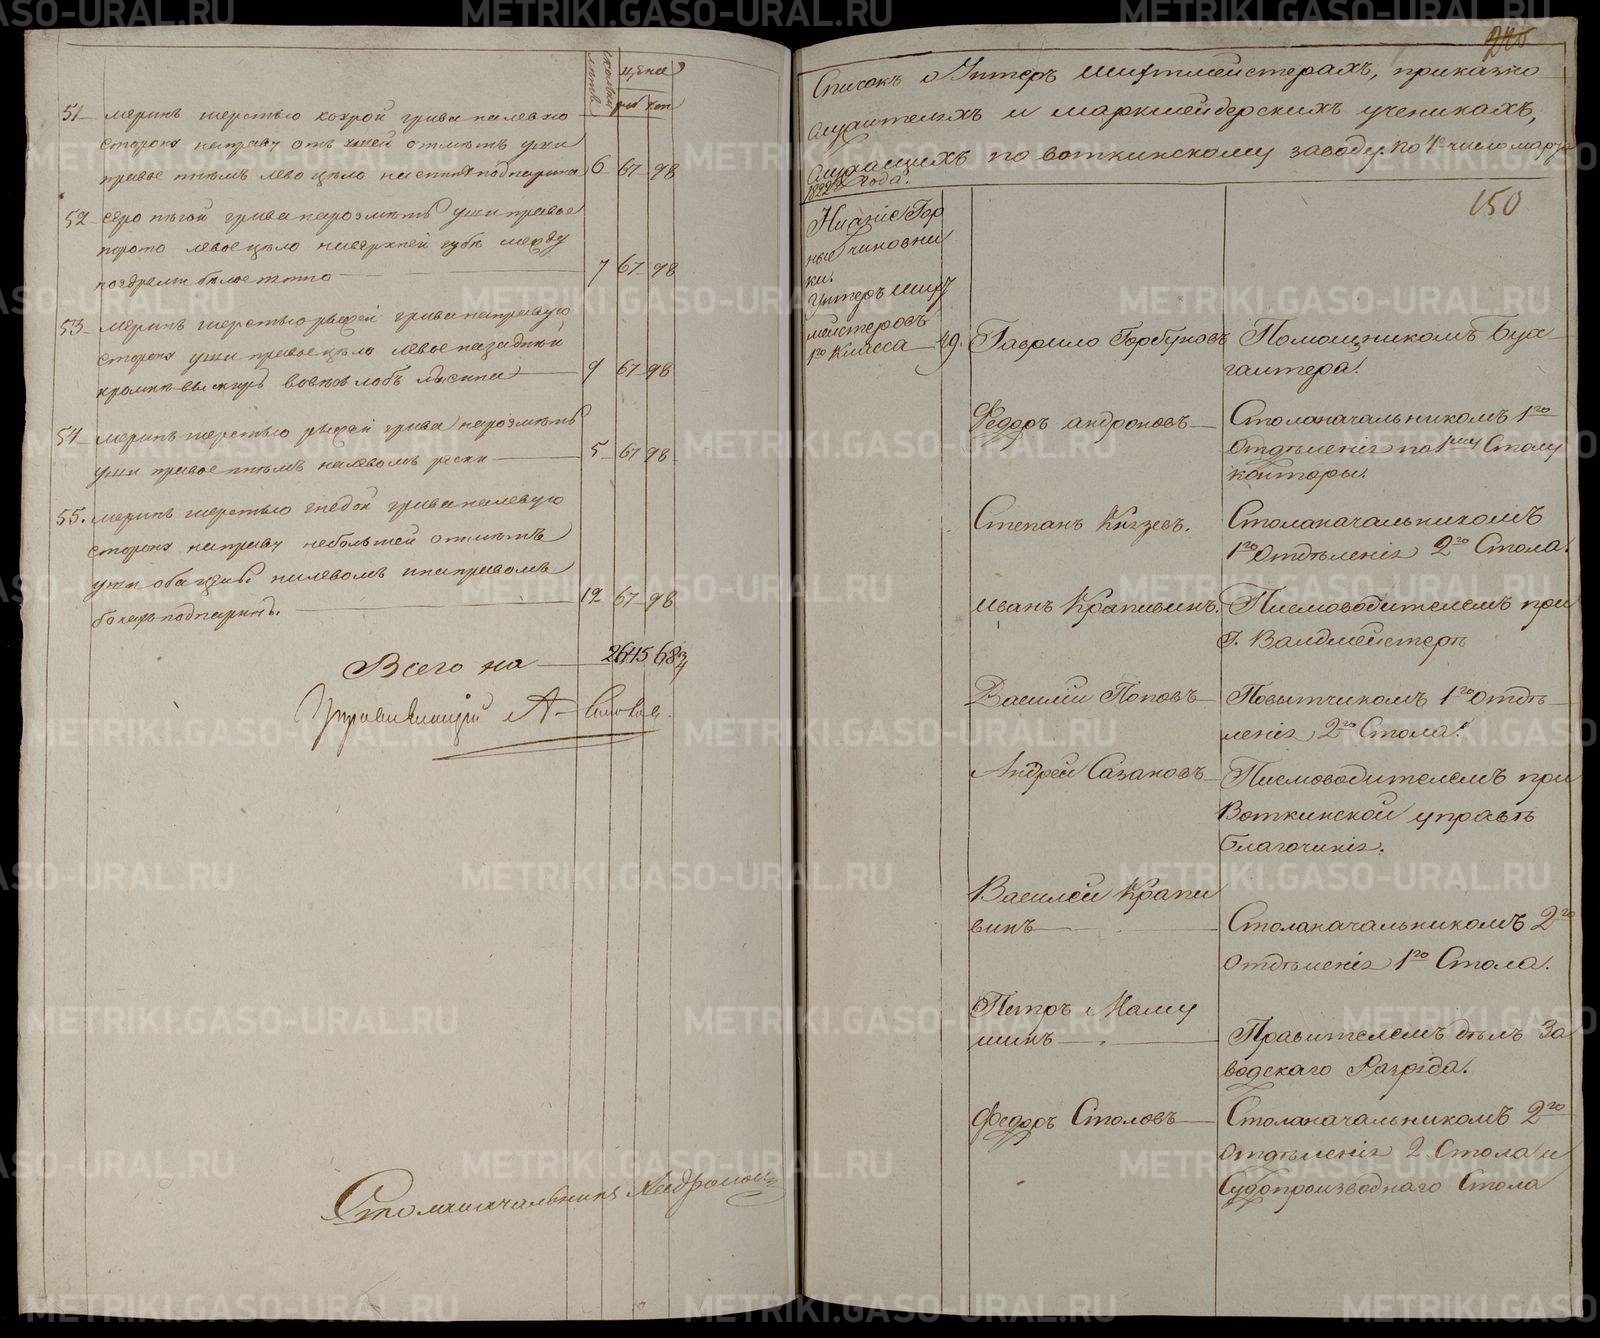 сколки
летъ
цѣна
руб коп
51 меринъ шерстью каурой грива налевую
сторону направу отъ ушей отметъ уши
правое пнемъ лево цело наспине подпарина 6 67 98
52 серо пегой грива нарозметъ уши правое
порото левое цело наверхней губе между
ноздреми белое пятно 7 67 98
53 меринъ шерстью рыжей грива направую
сторону уши правое цело левое назадини
вовесь лобъ лысина 9 67 98
54 меринъ шерстью рыжей грива нарозметъ
уши правое пнемъ налевомъ 5 67 98
55. меринъ шерстью гнедой грива налевую
сторону направу небольшей отметъ
уши оба целы налевомъ инаправомъ
бокахъ подпарины. 12 67 98
Всего на 2645 68 3/4
Управляющій А.
Столаначальникъ Андроновъ
Списокъ о Унтеръ Шихтмейстерахъ, приказно
служителяхъ и маркшейдерскихъ ученикахъ,
служащихъ по воткинскому заводу по 1е число марта
года.
150
Нисшіе Гор
ные Чиновни
ки.
Унтеръ Шихт
мейстеровъ
1го Класса 49. Гаврило Горбуновъ Помощникомъ Бух
галтера.
Федоръ андроновъ Столаначальникомъ 1го
Отделенія по 1му Столу
конторы.
Степанъ Князевъ. Столаначальникомъ
1го Отделенія 2го Стола.
Иванъ Крапивинъ. Писмоводителемъ при
Г. Валдмейстере
Василій Поповъ Повытчикомъ 1го Отде
ленія 2го Стола.
Андрей Сазановъ Писмоводителемъ при
Воткинской управе
Благочинія.
Василей Крапи
винъ Столаначальникомъ 2го
Отделенія 1го Стола.
Петръ Маму
шинъ Правителемъ делъ За
водскаго Разряда.
Федоръ Столовъ Столаначальникомъ 2го
Отделенія 2 Стола и
Судопроизводнаго Стола
METRIKI.GASO-URAL.RU